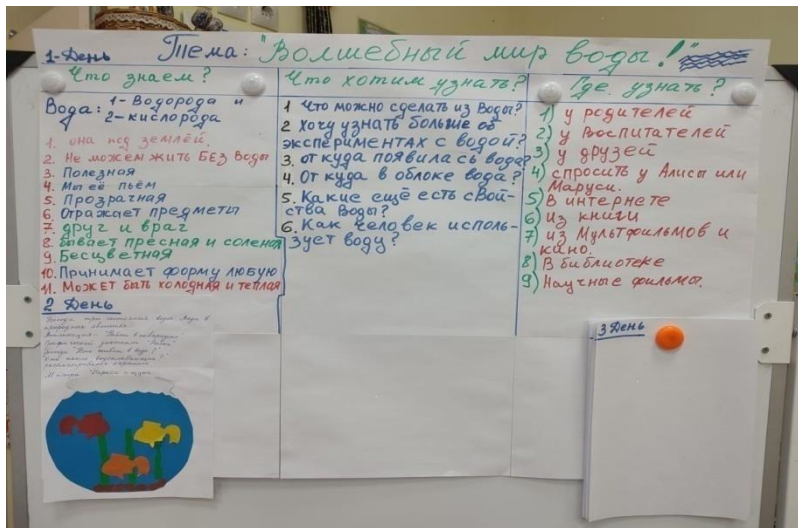 1-День Тема: "Волшебный мир воды!"
Что знаем?
Вода: 1-Водорода и
2-кислорода
1. она под землёй.
2. Не можем жить БЕЗ Воды
3. Полезная
4. Мы её пьём
5. Прозрачная
6. Отражает предметы
7. друг и враг
8. бывает пресная и соленая
9. Бесцветная
10. Принимает форму любую
11. Может быть холодная и теплая
Что хотим узнать?
1 Что можно сделать из Воды?
2 Хочу узнать больше об
экспериментах с водой?
3. от куда появилась вода?
4. От куда в облоке вода?
5. Какие ещё есть свой-
ства Воды?
6. Как человек исполь-
зует воду?
Где узнать?
1) у родителей
2) у Воспитателей
3) у друзей
4) спросить у Алисы или
Маруси.
5) В интернете
6) из книги
7) из Мультфильмов и
кино.
8) В библиотеке
9) Научные фильмы.
2 День
3 День